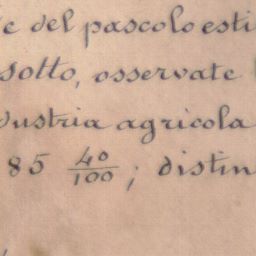 e del pascolo esti
sotto, osservate
dustria agricola
85 40/100; distin